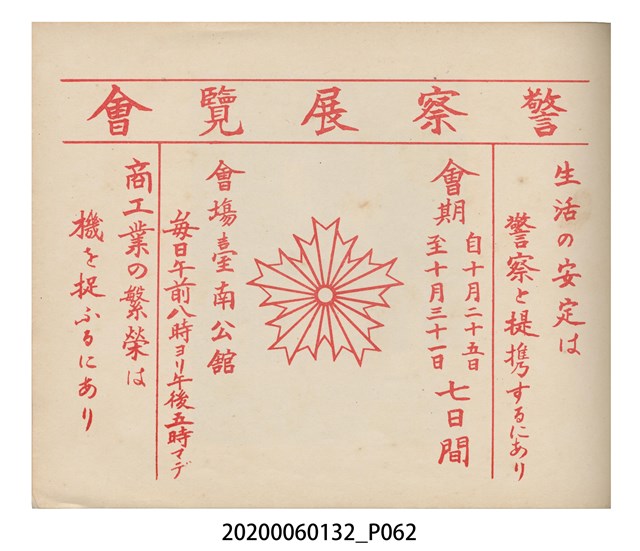 警察展覽會
生活の安定は
警察と提携するにあり
會期
自十月二十五日
至十月三十一日
七日間
會場臺南公館
每日午前八時ヨリ午後五時マデ
商工業の繁榮は
機を捉ふるにあり
20200060132_P062